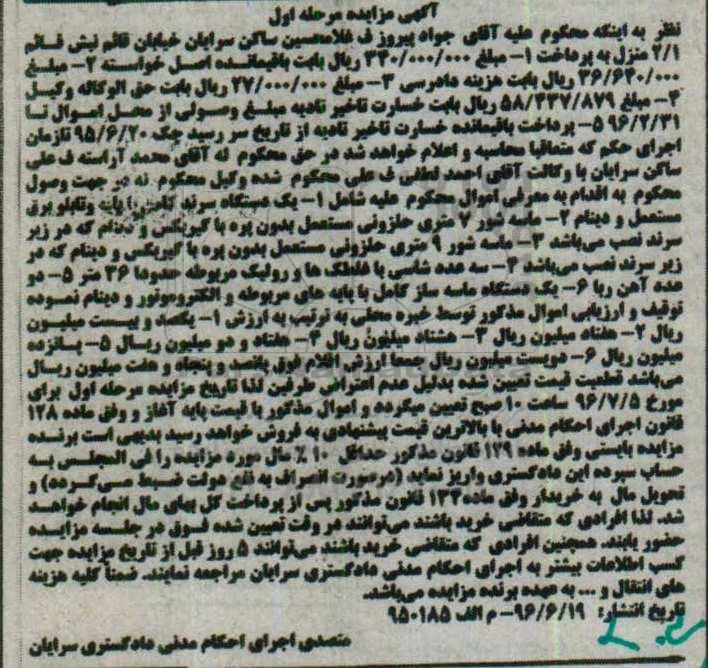 آگهی مزایده مرحله اول
نظر به اینکه محکوم علیه آقای جواد پیروز ف غلامحسین ساکن سرایان خیابان قائم نبش قائم
۲/۱ منزل به پرداخت ۱- مبلغ ۳۳۰/۰۰۰/۰۰۰ ریال بابت باقیمانده اصل خواسته ۲- مبلغ
۳۶/۶۴۰/۰۰۰ ریال بابت هزینه دادرسی ۳- مبلغ ۲۷/۰۰۰/۰۰۰ ریال بابت حق الوکاله وکیل
۴- مبلغ ۵۸/۳۳۷/۸۷۹ ریال بابت خسارت تاخیر تادیه مبلغ وصولی از محل اموال تا
۹۶/۲/۳۱ ۵- پرداخت باقیمانده خسارت تاخیر تادیه از تاریخ سر رسید چک ۹۵/۶/۲۰ تازمان
اجرای حکم که متعاقبا محاسبه و اعلام خواهد شد در حق محکوم له آقای محمد آراسته ف علی
ساکن سرایان با وکالت آقای احمد لطفی ف علی محکوم شده وکیل محکوم له در جهت وصول
محکوم به اقدام به معرفی اموال محکوم علیه شامل ۱- یک دستگاه سرند کامل با پایه وتابلو برق
مستعمل و دینام ۲- ماسه شور ۷ متری حلزونی مستعمل بدون پره با گیربکس و دینام که در زیر
سرند نصب می‌باشد ۳- ماسه شور ۹ متری حلزونی مستعمل بدون پره با گیربکس و دینام که در
زیر سرند نصب می‌باشد ۴- سه عدد شاسی با غلطک ها و رولیک مربوطه حدودا ۳۶ متر ۵- دو
عدد آهن ربا ۶- یک دستگاه ماسه ساز کامل با پایه های مربوطه و الکتروموتور و دینام نموده
توقیف و ارزیابی اموال مذکور توسط خبره محلی به ترتیب به ارزش ۱- یکصد و بیست میلیون
ریال ۲- هفتاد میلیون ریال ۳- هشتاد میلیون ریال ۴- هفتاد و دو میلیون ریال ۵- پانزده
میلیون ریال ۶- دویست میلیون ریال جمعا ارزش اقلام فوق پانصد و پنجاه و هفت میلیون ریال
می‌باشد قطعیت قیمت تعیین شده بدلیل عدم اعتراض طرفین لذا تاریخ مزایده مرحله اول برای
مورخ ۹۶/۷/۵ ساعت ۱۰ صبح تعیین میگردد و اموال مذکور با قیمت پایه آغاز و وفق ماده ۱۲۸
قانون اجرای احکام مدنی با بالاترین قیمت پیشنهادی به فروش خواهد رسید بدیهی است برنده
مزایده بایستی وفق ماده ۱۲۹ قانون مذکور حداقل ۱۰ % مال مورد مزایده را فی المجلس به
حساب سپرده این دادگستری واریز نماید (درصورت انصراف به نفع دولت ضبط می‌گردد) و
تحویل مال به خریدار وفق ماده۱۳۳ قانون مذکور پس از پرداخت کل بهای مال انجام خواهد
شد. لذا افرادی که متقاضی خرید باشند می‌توانند در وقت تعیین شده فوق در جلسه مزایده
حضور یابند. همچنین افرادی که متقاضی خرید باشند می‌توانند ۵ روز قبل از تاریخ مزایده جهت
کسب اطلاعات بیشتر به اجرای احکام مدنی دادگستری سرایان مراجعه نمایند. ضمناً کلیه هزینه
های انتقال و ... به عهده برنده مزایده می‌باشد.
تاریخ انتشار: ۹۶/۶/۱۹- م الف ۹۵۰۱۸۵
متصدی اجرای احکام مدنی دادگستری سرایان